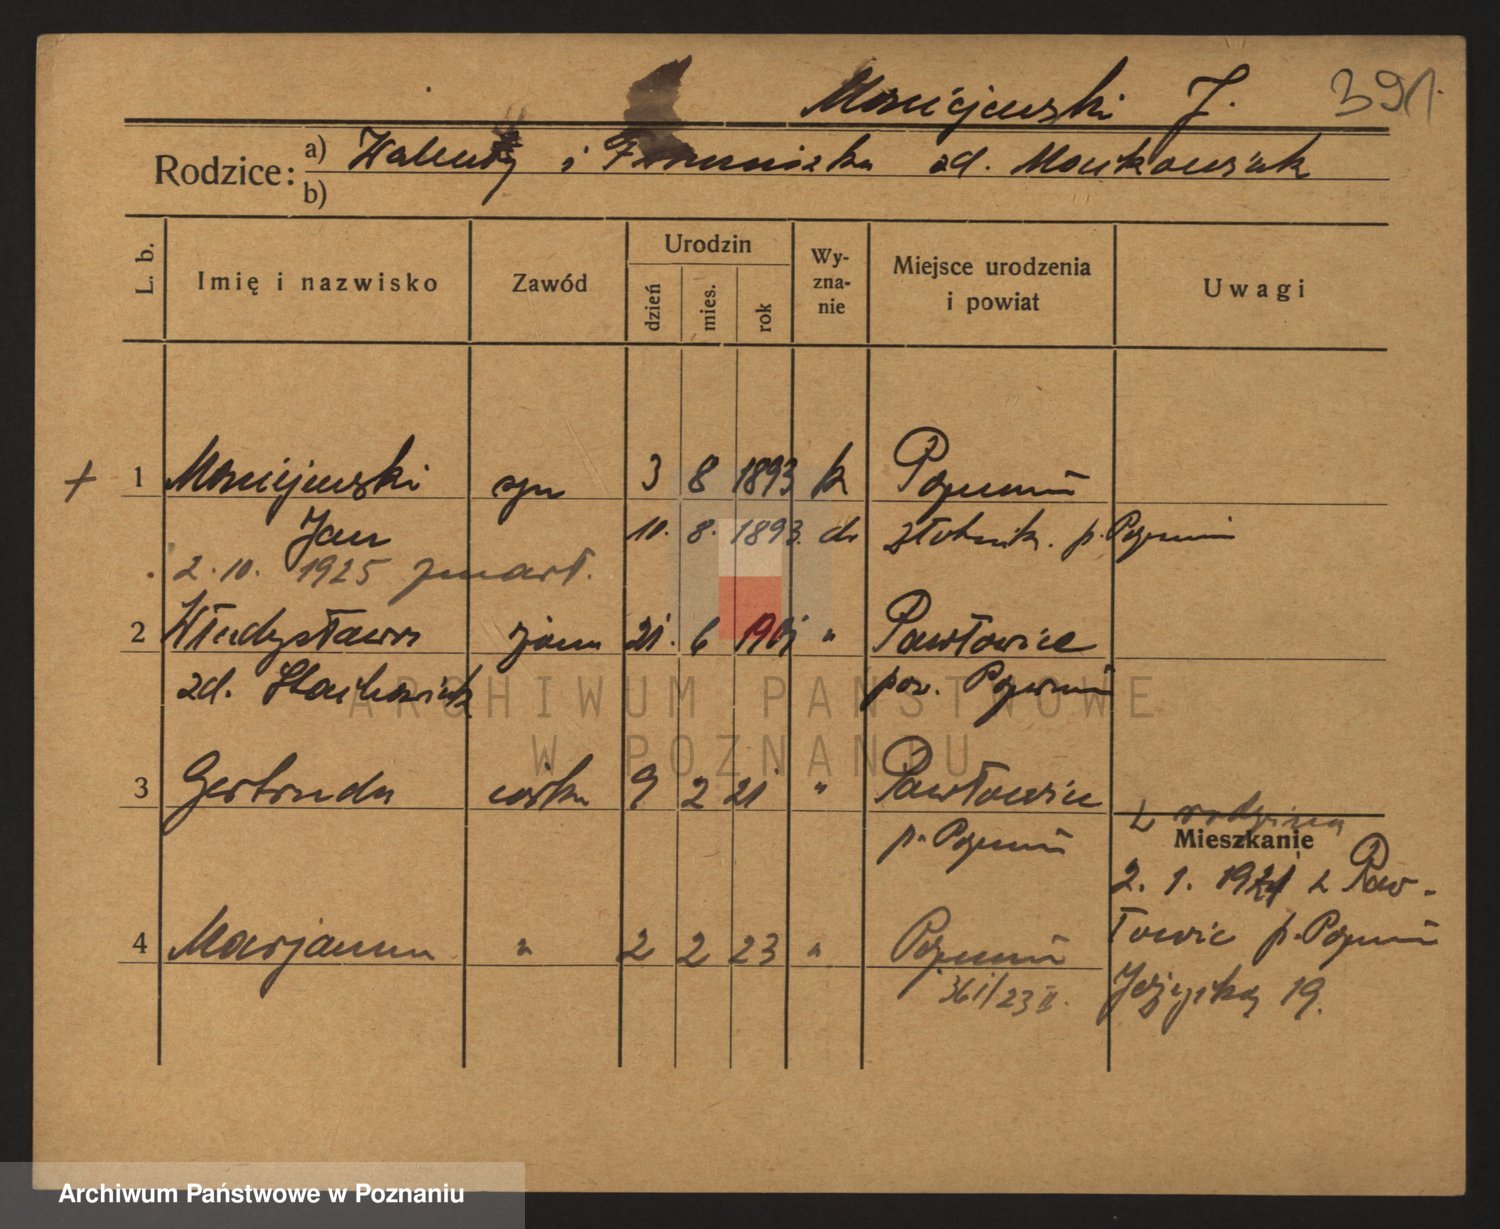 Maciejewski J. 391.
Rodzice: a) Walenty i Franciszka zd. Maćkowiak
b)
L. b. Imię i nazwisko Zawód Urodzin dzień mies. rok Wy-zna-nie Miejsce urodzenia i powiat Uwagi
+ 1 Maciejewski syn 3 8 1893 k Poznań
Jan 10. 8. 1893. dr Złotnik. p. Poznań
2.10. 1925 zmarł.
2 Władysława żona 21. 6 1901 " Pawłowice
zd. Stachowiak pow. Poznań
3 Gertruda córka 9 2 21 " Pawłowice
p. Poznań
z rodziną
Mieszkanie
2. 1. 1921 z Paw-
4 Marjanna " 2 2 23 " Poznań
łowic p. Poznań
361/23 II.
19.
ARCHIWUM PAŃSTWOWE
W POZNANIU
Archiwum Państwowe w Poznaniu